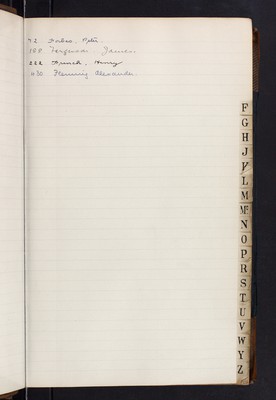 72 Forbes, Peter.
188 Ferguson James.
222 French, Henry
430 Fleming Alexander
F
G
H
J
K
L
M
Mc
N
O
P
R
S
T
U
V
W
Y
Z